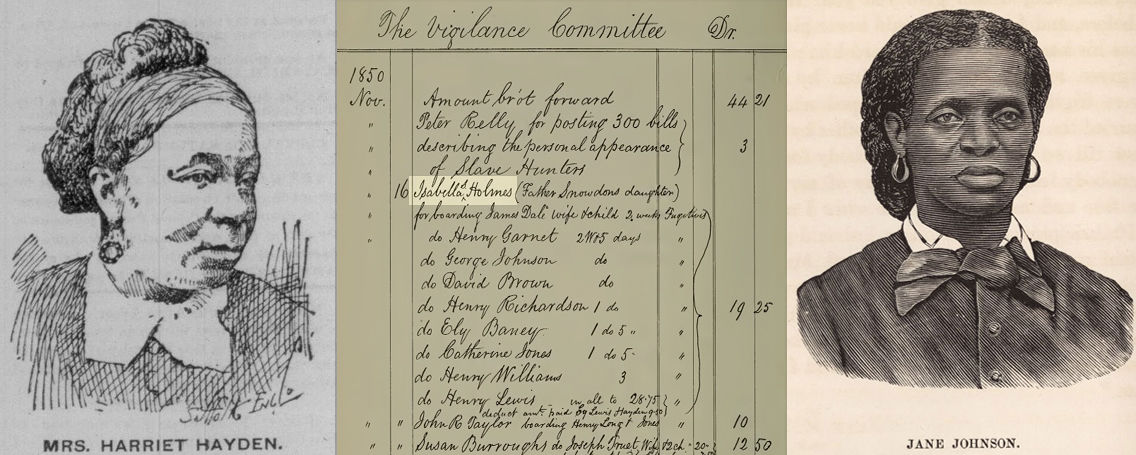 MRS. HARRIET HAYDEN.
The Vigilance Committee Dr.
1850
Nov. Amount bro't forward 44 21
" Peter Kelly for posting 300 bills
" describing the personal appearance 3
" of Slave Hunters
" 16 Isabella Holmes (Father Snowdons daughter)
" for boarding James Dale wife & child 2 weeks Fugitives
" do Henry Garnet 2 W & 5 days "
do George Johnson do "
do David Brown do "
do Henry Richardson 1 do " 19 25
do Ely Baney 1 do 5 " "
do Catherine Jones 1 do 5 - "
do Henry Williams 3 "
do Henry Lewis in all to 28.75 "
deduct amt. paid by Lewis Hayden
" " John R Taylor boarding Henry Long & Jones " 10
" " Susan Burroughs do Joseph Truet, Wife & 2 ch - 20 - 12 50
JANE JOHNSON.